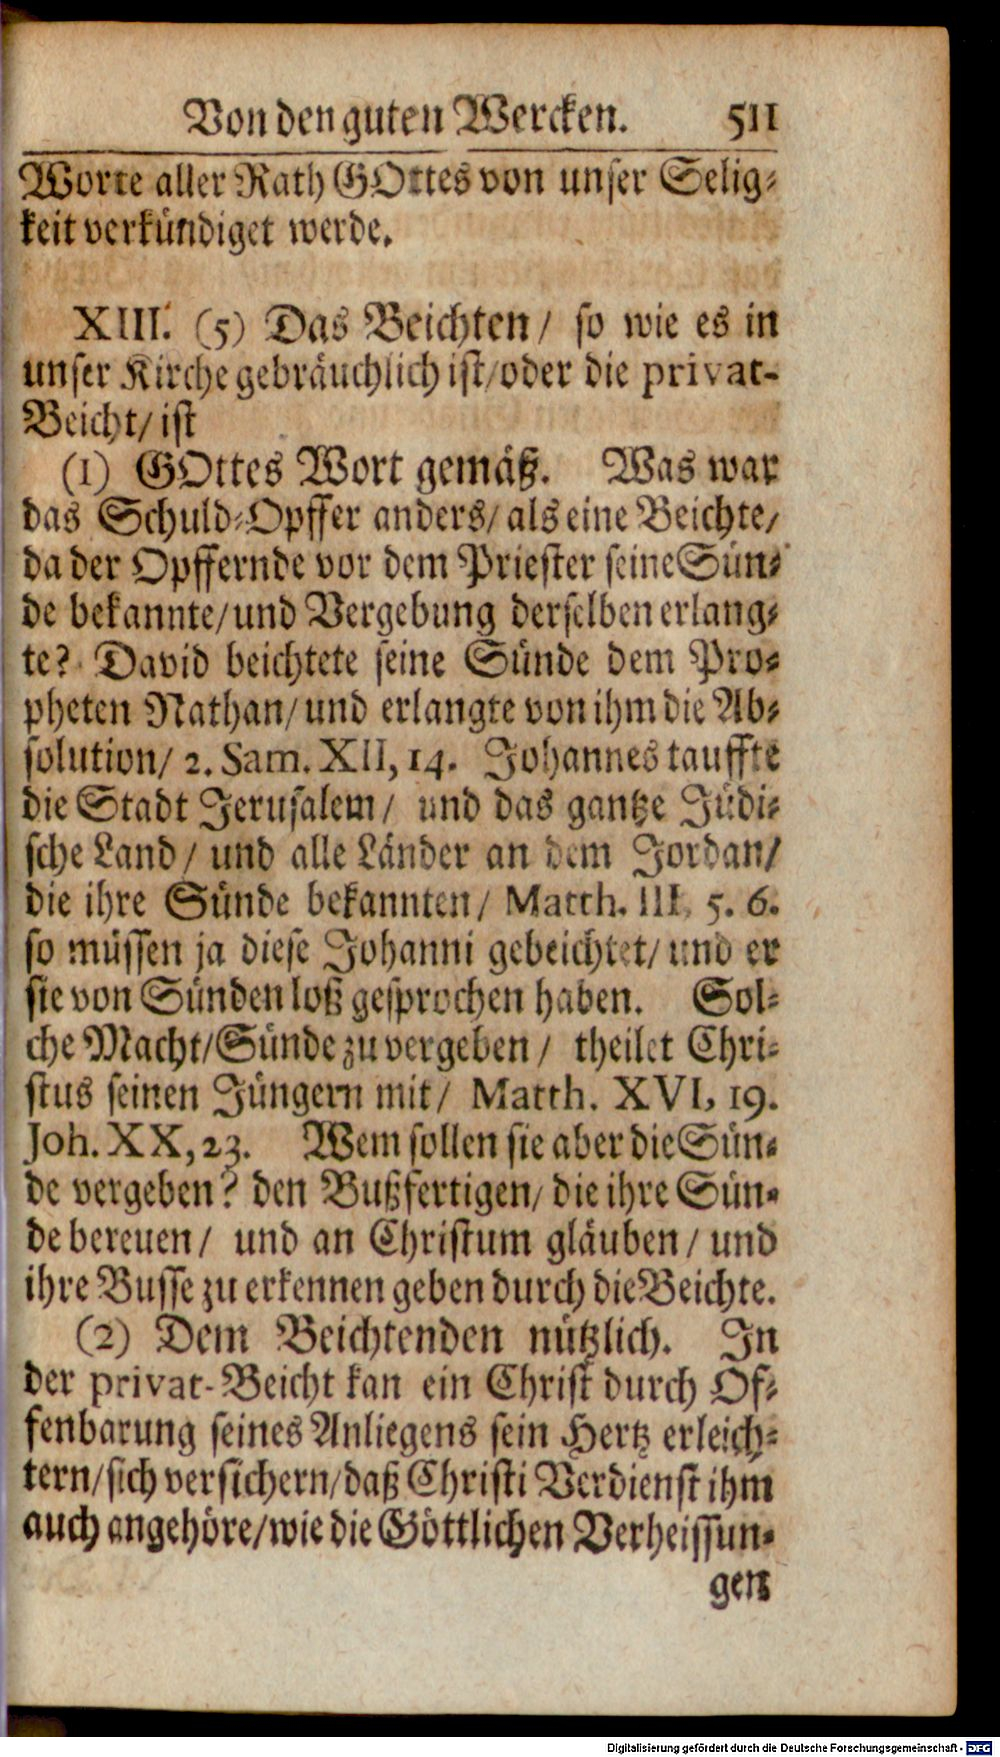 Von den guten Wercken. 511
Worte aller Rath GOttes von unser Selig-
keit verkündiget werde.
XIII. (5) Das Beichten/ so wie es in
unser Kirche gebräuchlich ist/oder die privat-
Beicht/ ist
(1) GOttes Wort gemäß. Was war
das Schuld-Opffer anders/ als eine Beichte/
da der Opffernde vor dem Priester seine Sün-
de bekannte/und Vergebung derselben erlang-
te? David beichtete seine Sünde dem Pro-
pheten Nathan/und erlangte von ihm die Ab-
solution/ 2. Sam. XII, 14. Johannes tauffte
die Stadt Jerusalem/ und das gantze Jüdi-
sche Land/ und alle Länder an dem Jordan/
die ihre Sünde bekannten/ Matth. III, 5. 6.
so müssen ja diese Johanni gebeichtet/ und er
sie von Sünden loß gesprochen haben. Sol-
che Macht/Sünde zu vergeben/ theilet Chri-
stus seinen Jüngern mit/ Matth. XVI, 19.
Joh. XX, 23. Wem sollen sie aber die Sün-
de vergeben? den Bußfertigen/ die ihre Sün-
de bereuen/ und an Christum gläuben/ und
ihre Busse zu erkennen geben durch die Beichte.
(2) Dem Beichtenden nützlich. In
der privat-Beicht kan ein Christ durch Of-
fenbarung seines Anliegens sein Hertz erleich-
tern/sich versichern/daß Christi Verdienst ihm
auch angehöre/wie die Göttlichen Verheissun-
gen
Digitalisierung gefördert durch die Deutsche Forschungsgemeinschaft - DFG